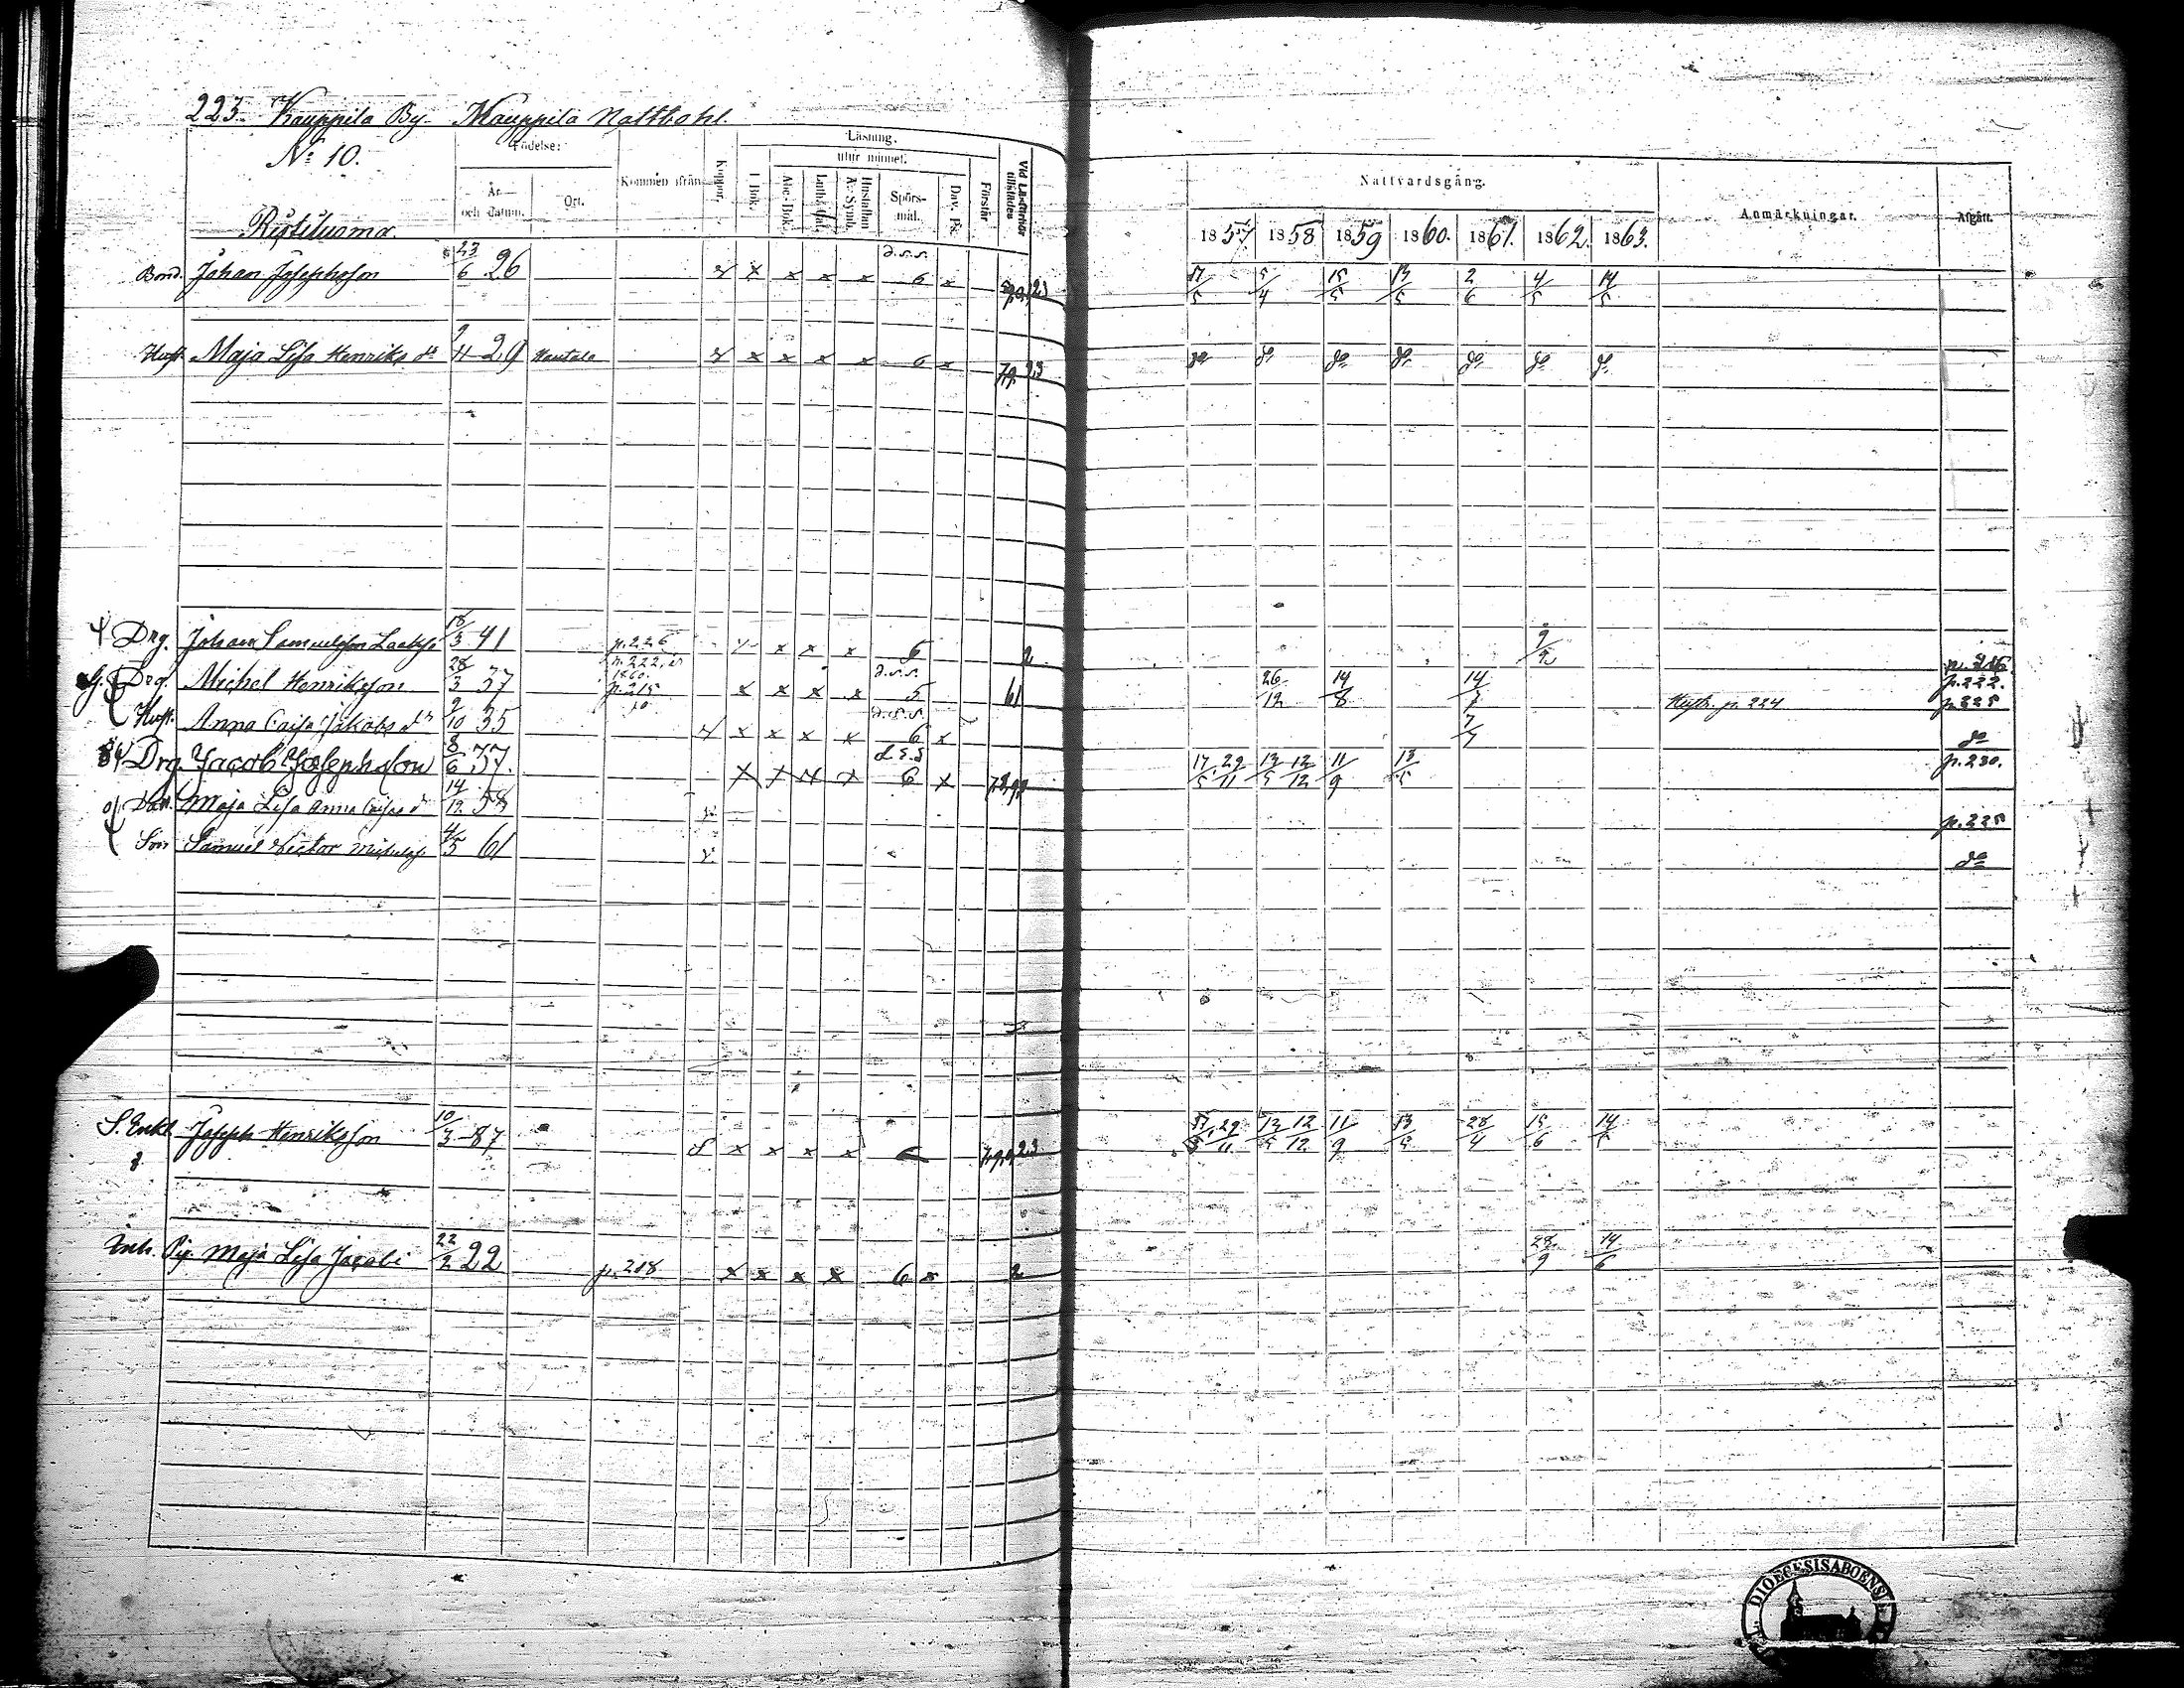 223. Kauppila By. Kauppila Rusthåll.
No 10.
Födelse:
År och datum.
Ort.
Kommen ifrån
Koppor.
Läsning.
utur minnet.
I Bok.
Abc-Bok.
Luth. Cat.
Hustaflan A. Symb.
Spörs-mål.
Dav. Ps.
Förstår
Vid Läsförhör tillstädes
Nattvardsgång.
1857 1858 1859 1860. 1861. 1862. 1863.
Anmärkningar.
Afgått.
Bond. Johan Josephsson 23/6 26 x x x x 6 x 17/5 5/4 15/5 13/5 2/6 4/5 14/5
Hust. Maja Lisa Henriks dr 9/11 29 Nautala x x x x 6 x do do do do do do do
Drg. Johan Samuelsson 18/3 41 p. 226 x x x 6 2 9/2
Drg. Michel Henriksson 28/3 37 p. 222, 1860. p. 215 x x x x 5 61 26/12 14/8 14/7 Hustr. p. 224 p. 222. p. 225
Hust. Anna Caisa Jakobs dr 9/10 35 x x x x 6 x 7/7 do
Drg. Jacob Josephsson 8/6 37. 6 x 17/5 29/11 13/5 12/12 11/9 13/5 p. 230.
Dott. Maja Lisa Anna Caisas dr 14/12 58 p. 225
Son Samuel Victor 4/5 61 do
S. Enkl. Joseph Henriksson 10/3 87 x x x x 17/5 29/11 13/5 12/12 11/9 13/5 28/4 15/6 14/5
Inh. Pig. Maja Lisa Jacobi 22/2 22 p. 218 x x x x 6 x 2 28/9 14/6
DIOECESIS ABOENSIS